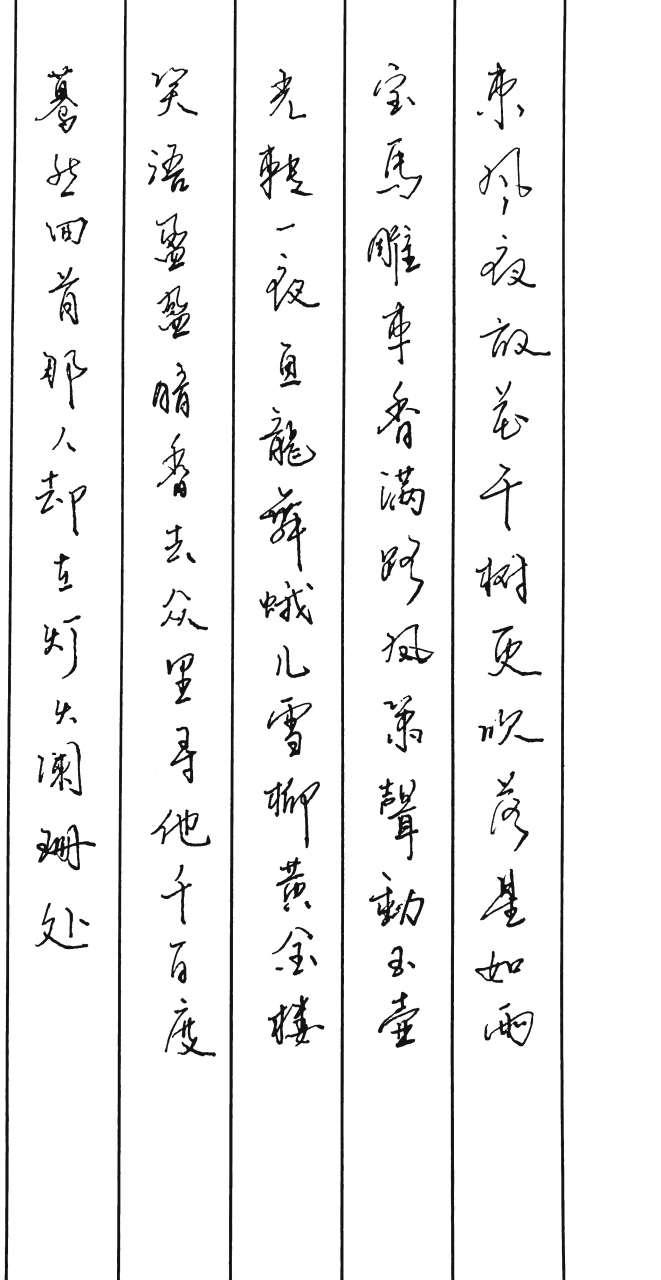 東风夜放花千树更吹落星如雨
宝馬雕車香满路凤箫聲動玉壶
光轉一夜鱼龍舞蛾儿雪柳黄金楼
笑语盈盈暗香去众里寻他千百度
蓦然回首那人却在灯火阑珊处